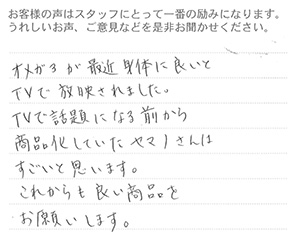 お客様の声はスタッフにとって一番の励みになります。
うれしいお声、ご意見などを是非お聞かせください。
オメガ3が最近身体に良いと
TVで放映されました。
TVで話題になる前から
商品化していたヤマノさんは
すごいと思います。
これからも良い商品を
お願いします。